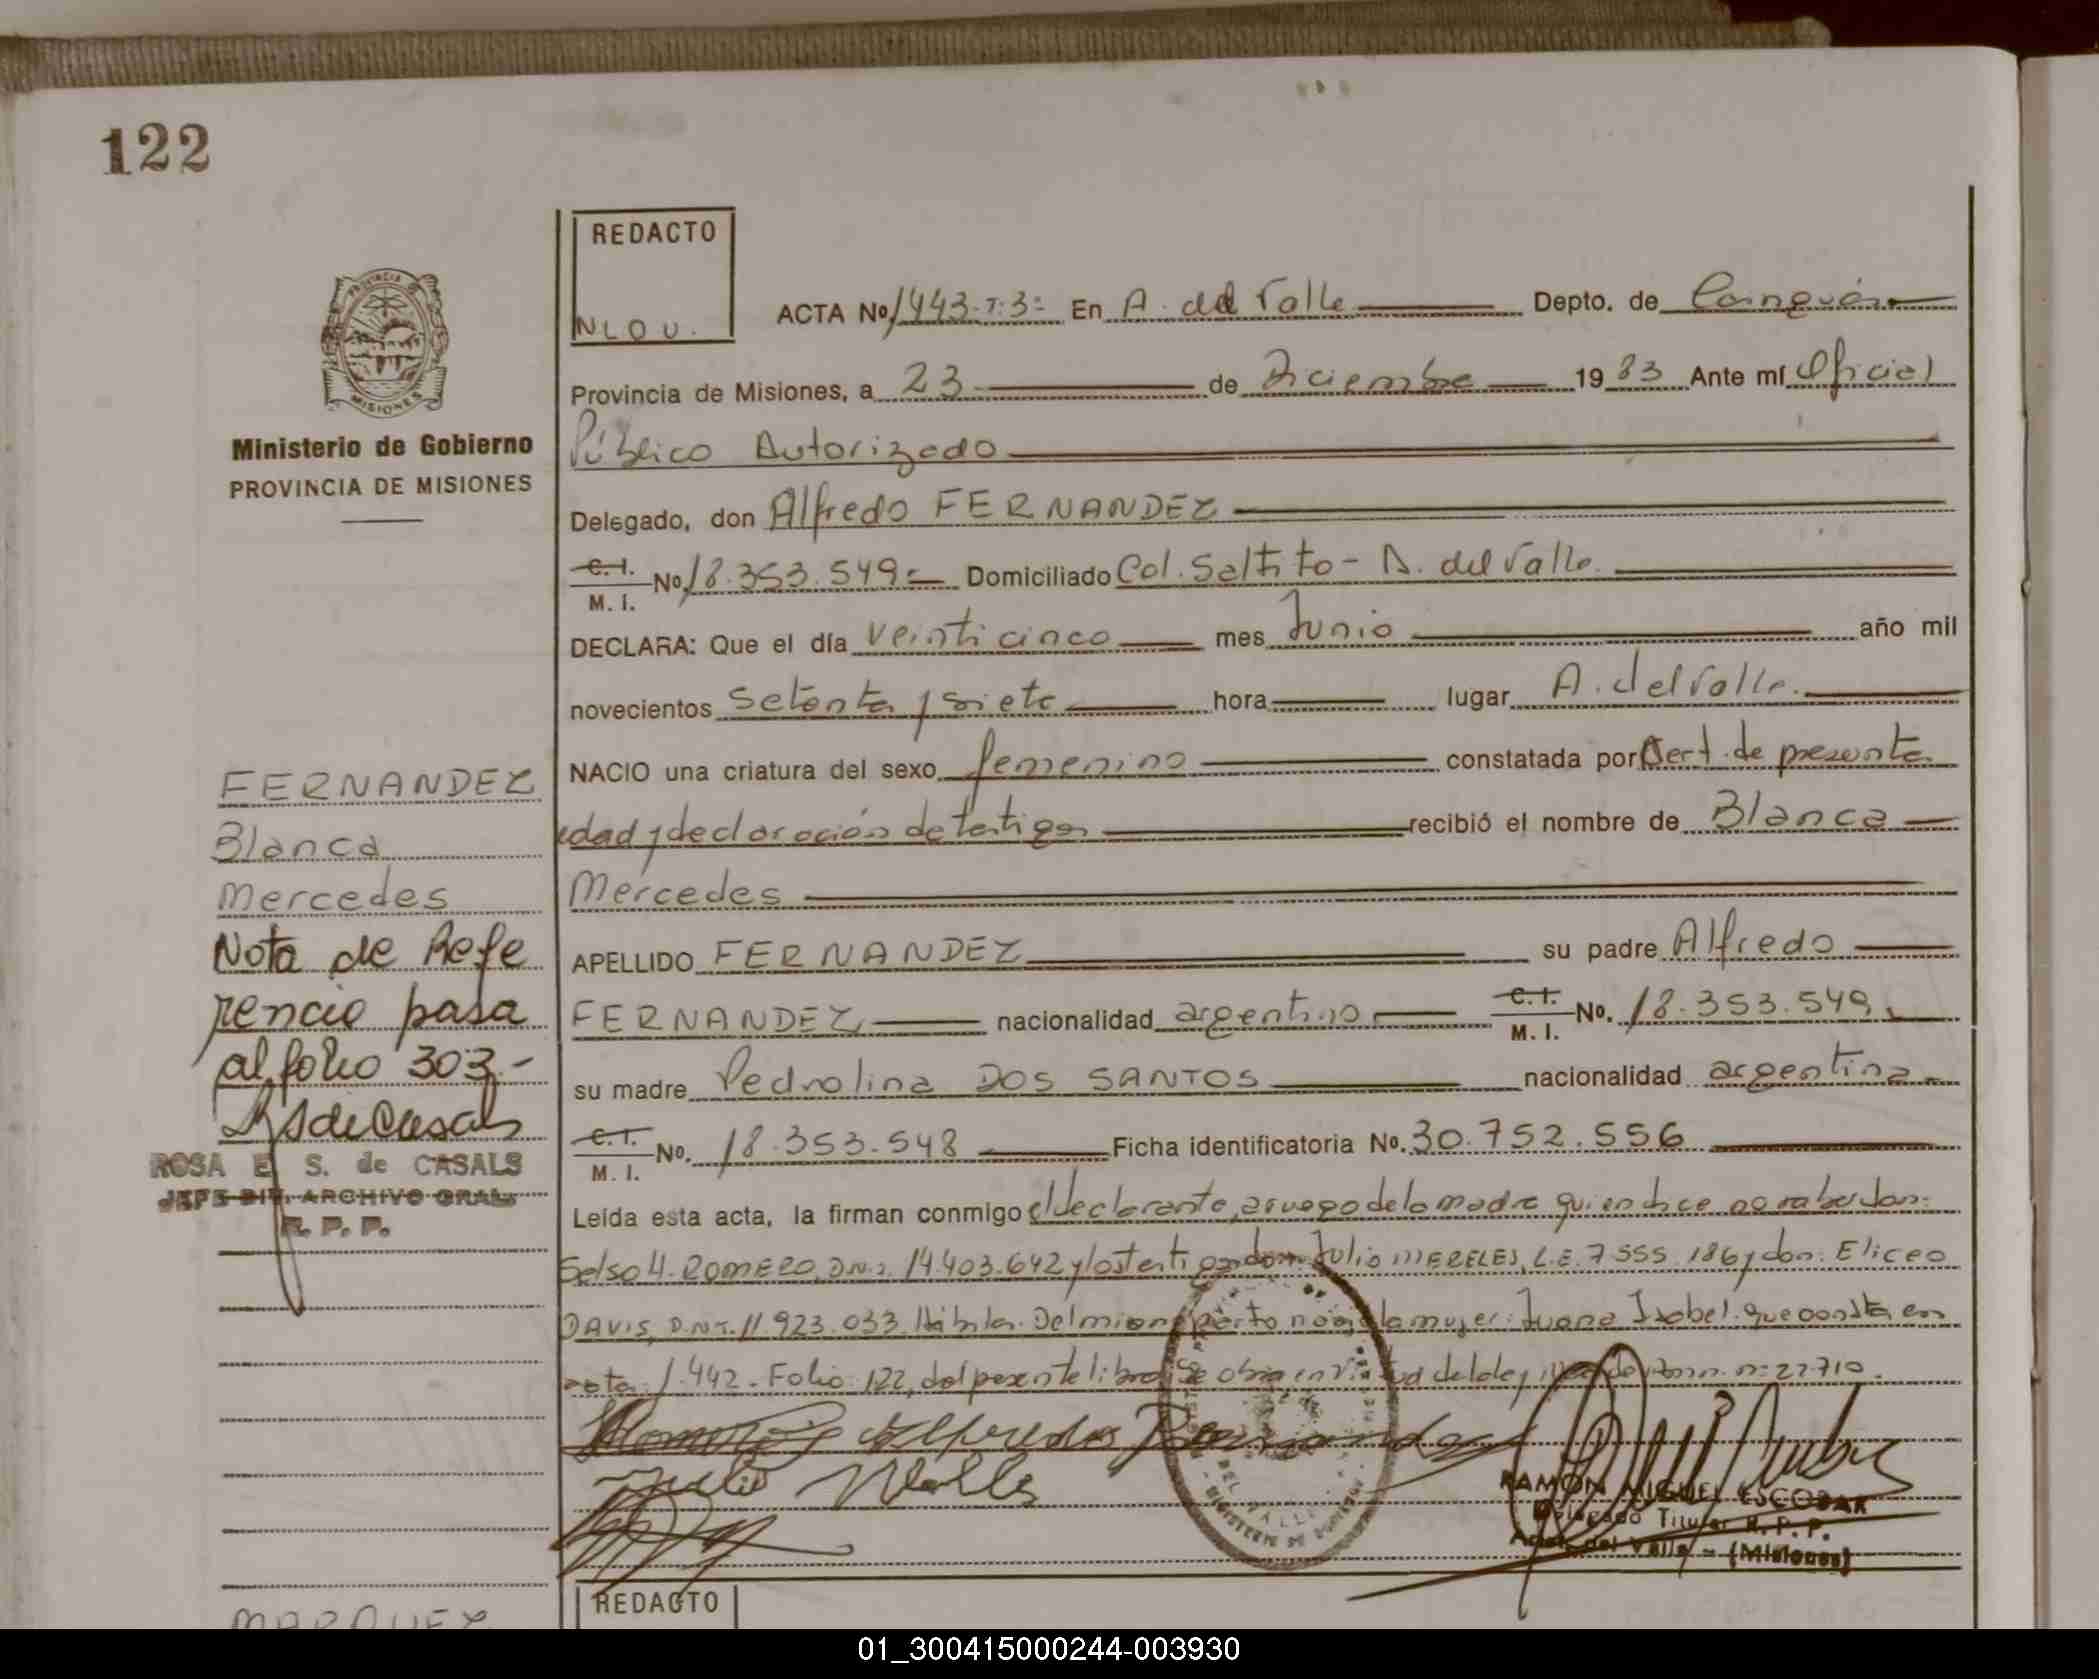 122
REDACTO
N L O U.
ACTA No. 1443-T:3= En A. del Valle Depto. de Cainguás
Provincia de Misiones, a 23 de Diciembre 1983 Ante mí Oficial
Público Autorizado
Delegado, don Alfredo FERNANDEZ
C. I. M. I. No. 18.353.549= Domiciliado Col. Saltito - A. del Valle.
DECLARA: Que el día veinticinco mes Junio año mil
novecientos setenta y siete hora lugar A. del Valle.
NACIO una criatura del sexo femenino constatada por Cert. de presunta
edad y declaración de testigos recibió el nombre de Blanca
Mercedes
APELLIDO FERNANDEZ su padre Alfredo
FERNANDEZ nacionalidad argentino C. I. M. I. No. 18.353.549
su madre Pedrolina DOS SANTOS nacionalidad argentina
C. I. M. I. No. 18.353.548 Ficha identificatoria No. 30.752.556
Leida esta acta, la firman conmigo el declarante, a ruego de la madre quien dice no saber don:
Selso H. ROMERO, D.N.I. 14.403.642 y los testigos don Julio MERELES, L.E. 7.555.186 y don: Eliceo
DAVIS, D.N.I. 11.923.033. Hábiles. Del mismo parto nació la mujer: Juana Isabel. que consta en
acta 1.442 - Folio 122, del presente libro, se obra en virtud de la ley 22710.
Alfredo Fernandez
Julio
RAMON MIGUEL ESCOBAR
Delegado Titular R. P. P.
Arist. del Valle - (Misiones)
PROVINCIA
MISIONES
Ministerio de Gobierno
PROVINCIA DE MISIONES
FERNANDEZ
Blanca
Mercedes
Nota de Refe
rencia pasa
al folio 303.-
RSdeCasals
ROSA E. S. de CASALS
JEFE DIV. ARCHIVO GRAL.
R. P. P.
MARQUEZ
REDACTO
01_300415000244-003930